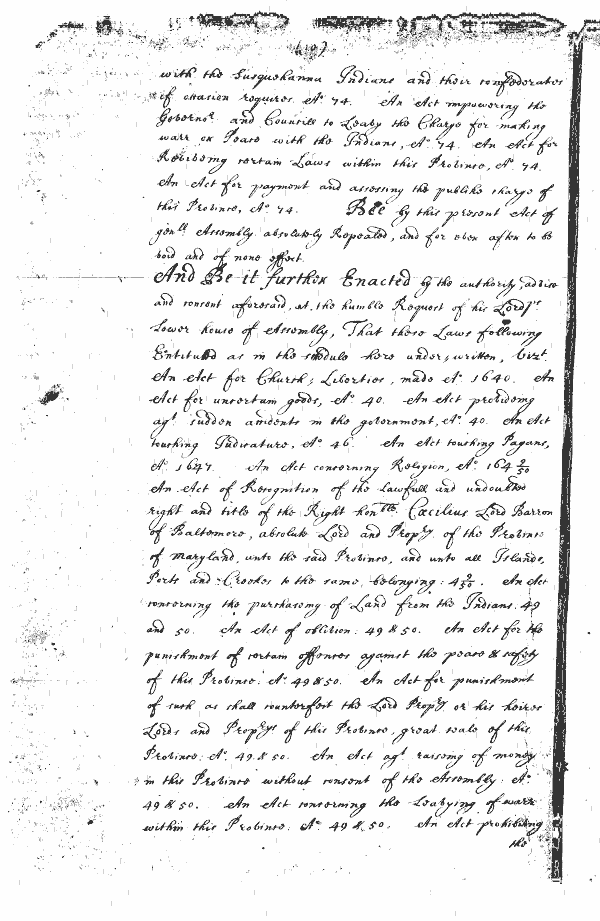 with the Susquehanna Indians and their confederates
if occasion requires. Ao 74. An Act impowering the
Governor. and Councill to Leavy the Charge for making
warr or Peace with the Indians, Ao. 74. An Act for
Reviveing certain Laws within this Province, Ao. 74.
An Act for payment and assessing the publike charge of
this Province, Ao. 74. Bee by this present Act of
genll Assembly absolutely Repealed, and for ever after to be
void and of none effect.
And Be it further Enacted by the authority, advise
and consent aforesaid, at the humble Request of his Lordps
Lower house of Assembly, That these Laws following
Entituled as in the scedule here under-written, vizt.
An Act for Church-Liberties, made Ao. 1640. An
Act for uncertain goods, Ao. 40. An Act provideing
agt sudden accidents in the government, Ao. 40. An Act
touching Judicature, Ao 46. An Act touching Pagans,
Ao. 1647. An Act concerning Religion, Ao. 164 9/50
An Act of Recognition of the Lawfull and undoubted
right and title of the Right honble Cæcilius Lord Barron
of Baltemore, absolute Lord and Propry. of the Province
of Maryland, unto the said Province, and unto all Islands,
Ports and Creekes to the same belonging: 4 9/50. An Act
concerning the purchasing of Land from the Indians. 49
and 50. An Act of oblivion. 49 & 50. An Act for the
punishment of certain offences against the peace & safety
of this Province. Ao. 49 & 50. An Act for punishment
of such as shall counterfeit the Lord Propry or his heires
Lords and Proprys of this Province, great seale of this
Province. Ao. 49 & 50. An Act agt raiseing of money
in this Province without consent of the Assembly. Ao.
49 & 50. An Act concerning the Leavying of warr
within this Province. Ao. 49 & 50. An Act prohibiting
the